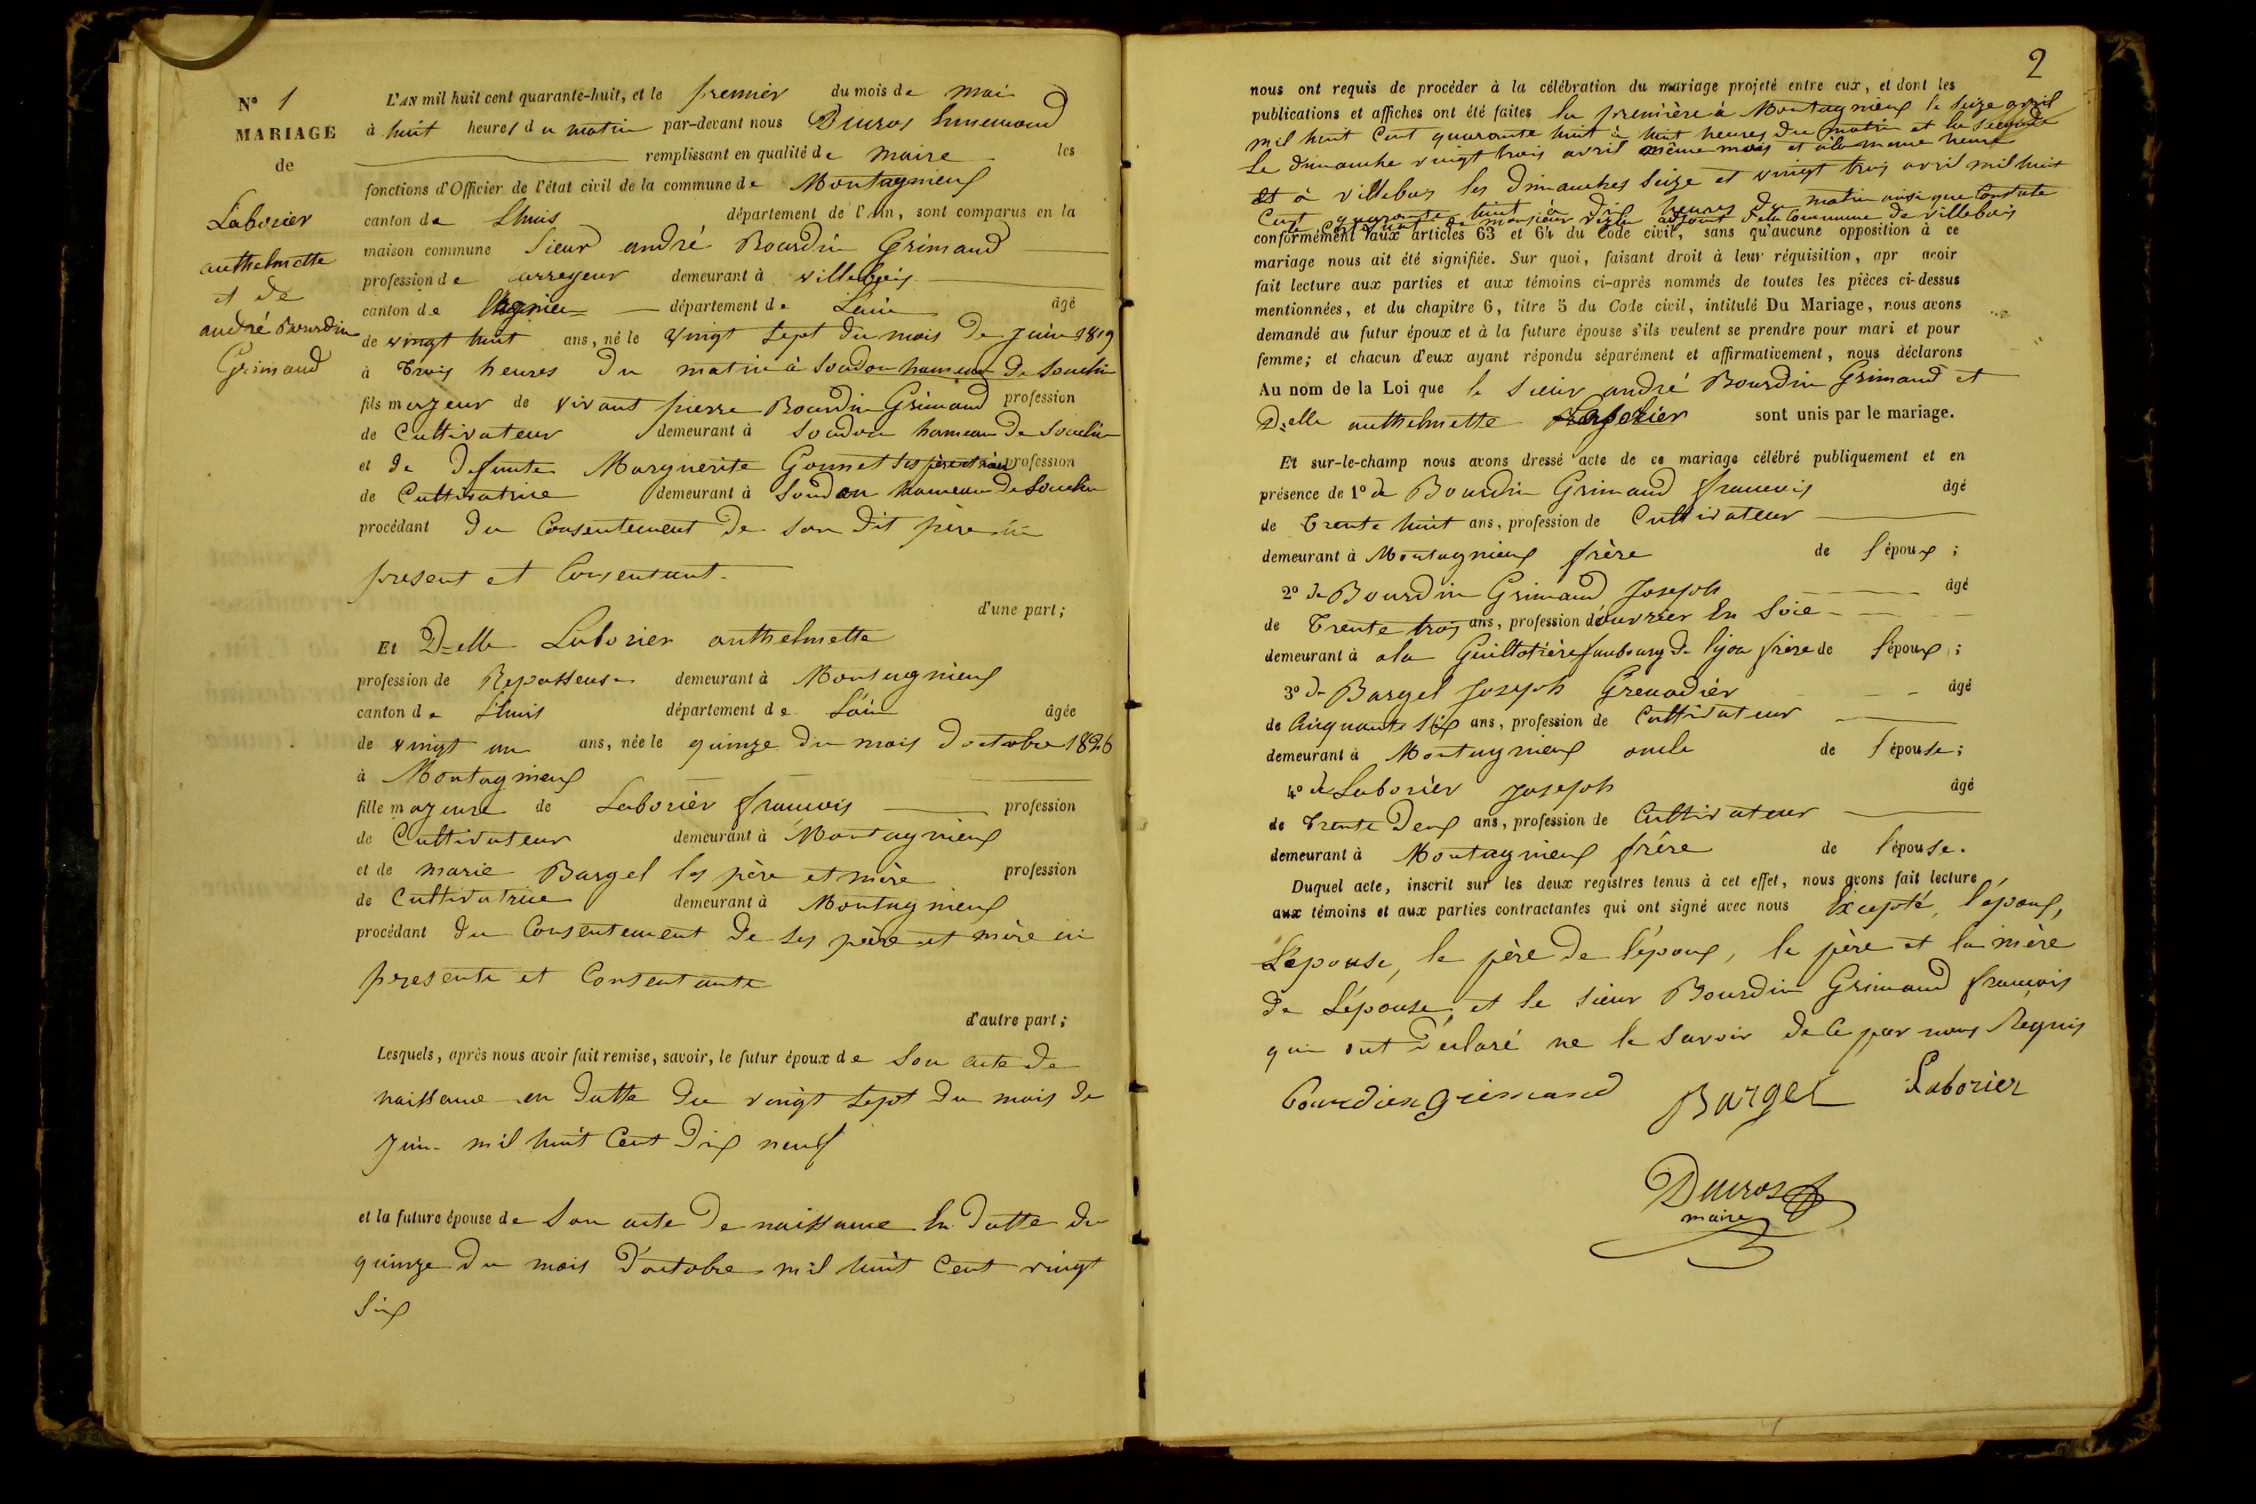 N° 1
MARIAGE
de
Laborier
anthelmette
et de
andré Bourdin
Grimaud
L'AN mil huit cent quarante-huit, et le premier du mois de mai
à huit heures du matin par-devant nous Ducros Ennemond
remplissant en qualité de maire les
fonctions d'Officier de l'état civil de la commune de Montagnieux
canton de Lhuis département de l'Ain, sont comparus en la
maison commune Sieur andré Bourdin Grimaud
profession de demeurant à villebois
canton de Lagnieu département de L'ain âgé
de vingt huit ans, né le vingt sept du mois de juin 1819
à trois heures du matin à Soudon hameau de Souclin
fils majeur de vivant pierre Bourdin Grimaud profession
de Cultivateur demeurant à Soudon hameau de Souclin
et de defunte Marguerite Gonnet ses père et mère profession
de Cultivatrice demeurant à Soudon hameau de Souclin
procédant du Consentement de son dit père ici
present et Consentant.
d'une part;
Et D.elle Laborier anthelmette
profession de Repasseuse demeurant à Montagnieux
canton de Lhuis département de L'ain âgée
de vingt un ans, née le quinze du mois doctobre 1826
à Montagnieux
fille majeure de Laborier francois profession
de Cultivateur demeurant à Montagnieux
et de marie Bargel les père et mère profession
de Cultivatrice demeurant à Montagnieux
procédant du Consentement de ses père et mère ici
presente et Consentante
d'autre part;
Lesquels, après nous avoir fait remise, savoir, le futur époux de Son acte de
naissance en datte du vingt sept du mois de
juin mil huit Cent dix neuf
et la future épouse de Son acte de naissance En datte du
quinze du mois d'octobre mil huit Cent vingt
Six
2
nous ont requis de procéder à la célébration du mariage projeté entre eux, et dont les
publications et affiches ont été faites la première à Montagnieux le Seize avril
mil huit Cent quarante huit à huit heures du matin et la Seconde
Le dimanche vingt trois avril même mois et à la meme heure
Et à villebois les dimanches Seize et vingt trois avril mil huit
Cent quarante huit à dix heures du matin ainsi que Constate
Le de monsieur adjoint de la Commune de villebois
conformément aux articles 63 et 64 du Code civil, sans qu'aucune opposition à ce
mariage nous ait été signifiée. Sur quoi, faisant droit à leur réquisition, apr avoir
fait lecture aux parties et aux témoins ci-après nommés de toutes les pièces ci-dessus
mentionnées, et du chapitre 6, titre 5 du Code civil, intitulé Du Mariage, nous avons
demandé au futur époux et à la future épouse s'ils veulent se prendre pour mari et pour
femme; et chacun d'eux ayant répondu séparément et affirmativement, nous déclarons
Au nom de la Loi que le Sieur andré Bourdin Grimaud et
D.elle anthelmette Laborier sont unis par le mariage.
Et sur-le-champ nous avons dressé acte de ce mariage célébré publiquement et en
présence de 1° de Bourdin Grimaud francois âgé
de trente huit ans, profession de Cultivateur
demeurant à Montagnieux frère de l'époux;
2° de Bourdin Grimaud Joseph âgé
de Trente trois ans, profession d'ouvrier En Soie
demeurant à ala Guillotière faubourg de lyon frère de l'époux;
3° de Bargel Joseph Grenadier âgé
de Cinquante Six ans, profession de Cultivateur
demeurant à Montagnieux oncle de l'épouse;
4° de Laborier Joseph âgé
de Trente Deux ans, profession de Cultivateur
demeurant à Montagnieux frère de l'épouse.
Duquel acte, inscrit sur les deux registres tenus à cet effet, nous avons fait lecture
aux témoins et aux parties contractantes qui ont signé avec nous Excepté, l'époux,
L'epouse, le père de l'époux, le père et la mère
de L'épouse, et le Sieur Bourdin Grimaud francois
qui ont Déclaré ne le Savoir de Ce par nous Requis
Bourdien griemand Bargel Laborier
Ducros
maire